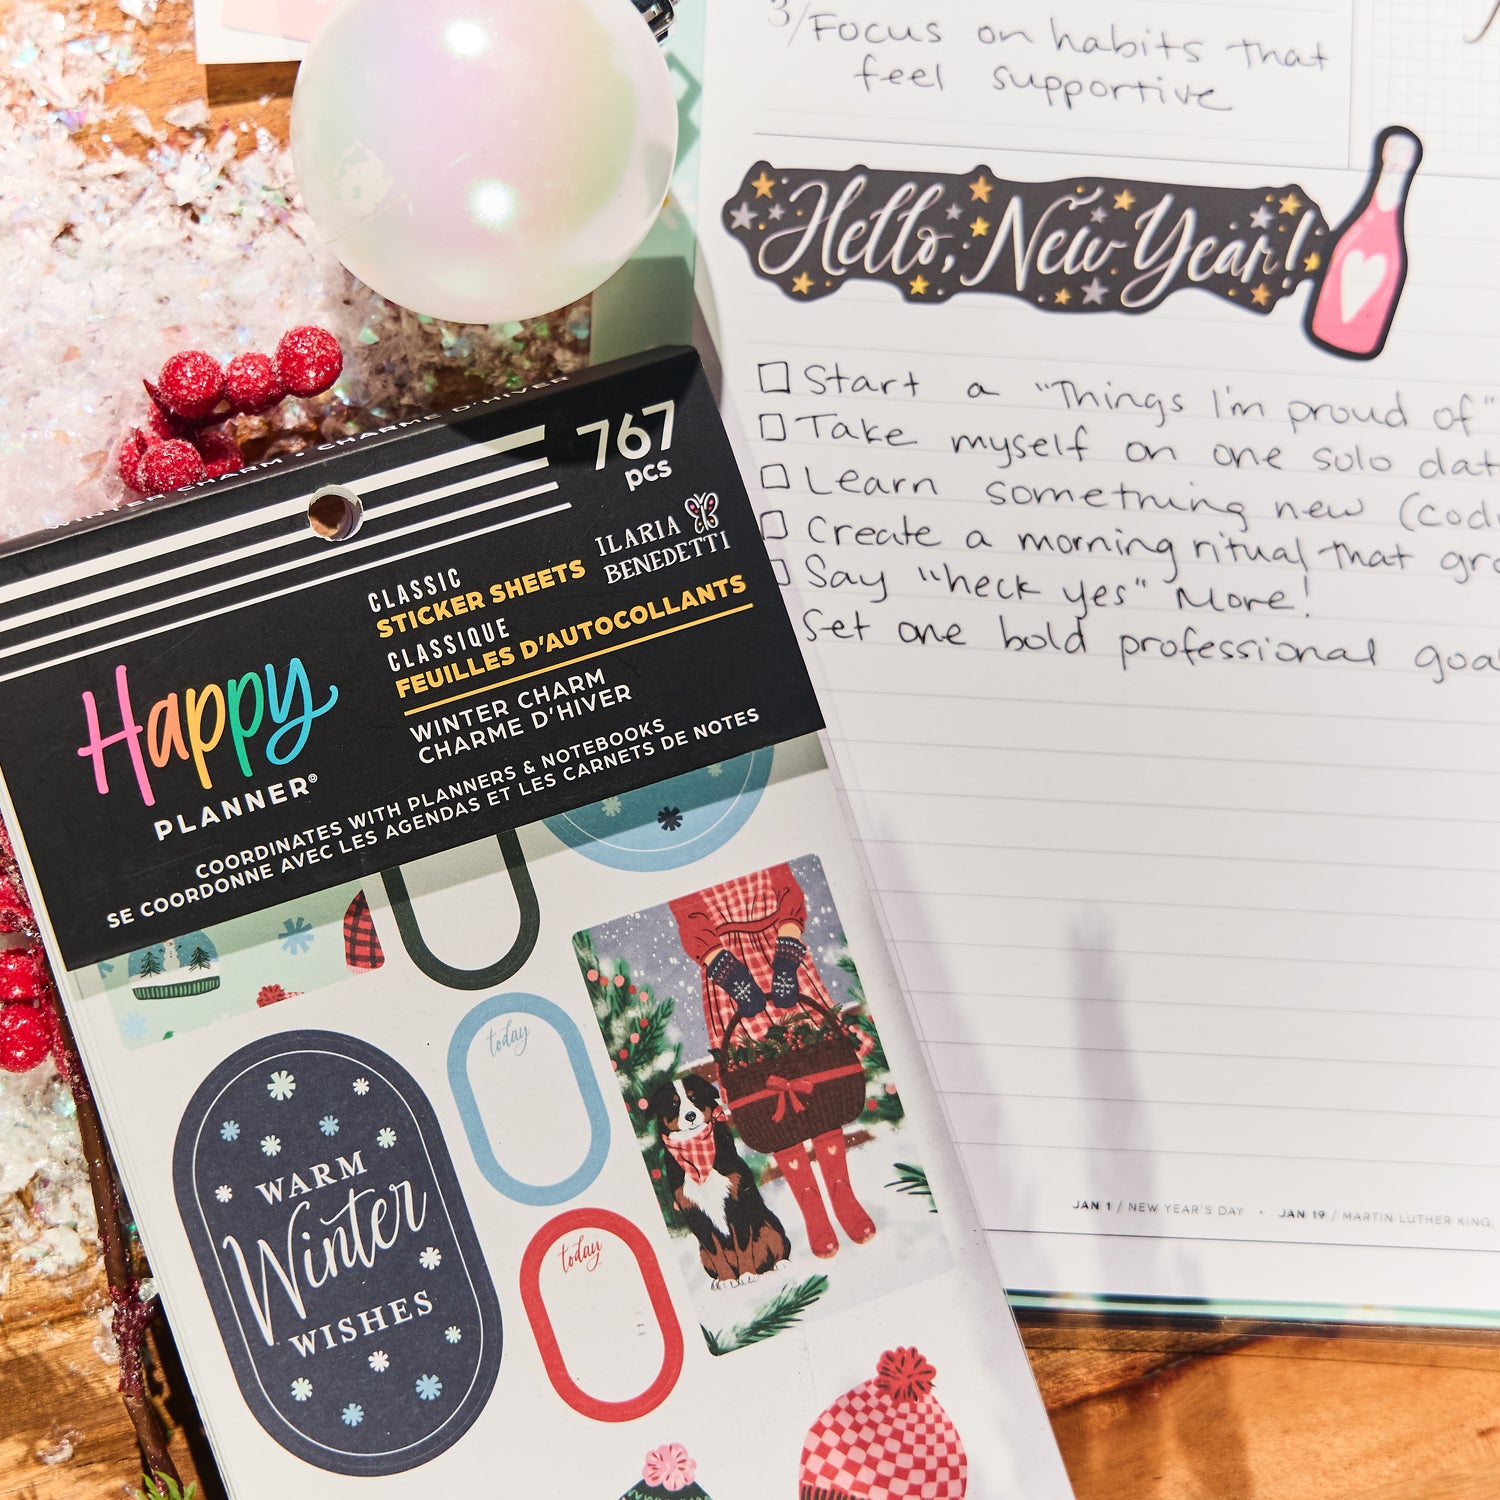 3/Focus on habits that
feel supportive
Hello, New Year!
Start a "Things I'm proud of"
Take myself on one solo
Learn something new
Create a morning ritual that
Say "heck yes" More!
Set one bold professional
JAN 1 / NEW YEAR'S DAY • JAN 19 / MARTIN LUTHER KING,
WINTER CHARM • CHARME D'HIVER
767
pcs
ILARIA
BENEDETTI
CLASSIC
STICKER SHEETS
CLASSIQUE
FEUILLES D'AUTOCOLLANTS
WINTER CHARM
CHARME D'HIVER
Happy
PLANNER®
COORDINATES WITH PLANNERS & NOTEBOOKS
SE COORDONNE AVEC LES AGENDAS ET LES CARNETS DE NOTES
today
WARM
Winter
WISHES
today